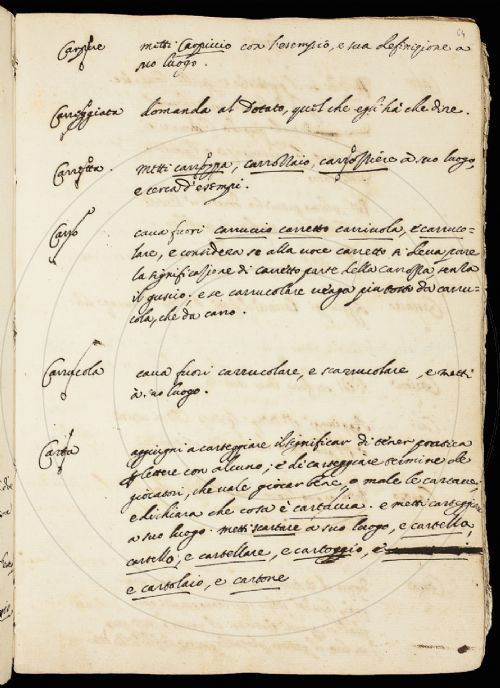 64
Carpire metti Carpiccio con l'esempio, e sua definizione a
suo luogo.
Carreggiata domanda al Dotato, quel che egli hà che dire.
Carretta. metti carrozza, carrozzaio, carrozziere à suo luogo,
e cerca d'esempi.
Carro cava fuori carruccio carretto carriuola, e carruco-
lare, e considera se alla voce carretto si deva porre
la significazione di carretto parte della carrozza senza
il guscio; e se carrucolare venga piu tosto da carru-
cola, che da carro.
Carrucola cava fuori carrucolare, e scarrucolare, e metti
à suo luogo.
Carta aggiugni a carteggiare il significar di tener pratica
lettere con alcuno; e di carteggiare termine de
giocatori, che vale giocar bene, o male le carte
e dichiara che cosa è cartaccia. e metti carteggiare
a suo luogo. metti scartare a suo luogo, e cartella,
cartello, e cartellare, e carteggio, e
e cartolaio, e cartone